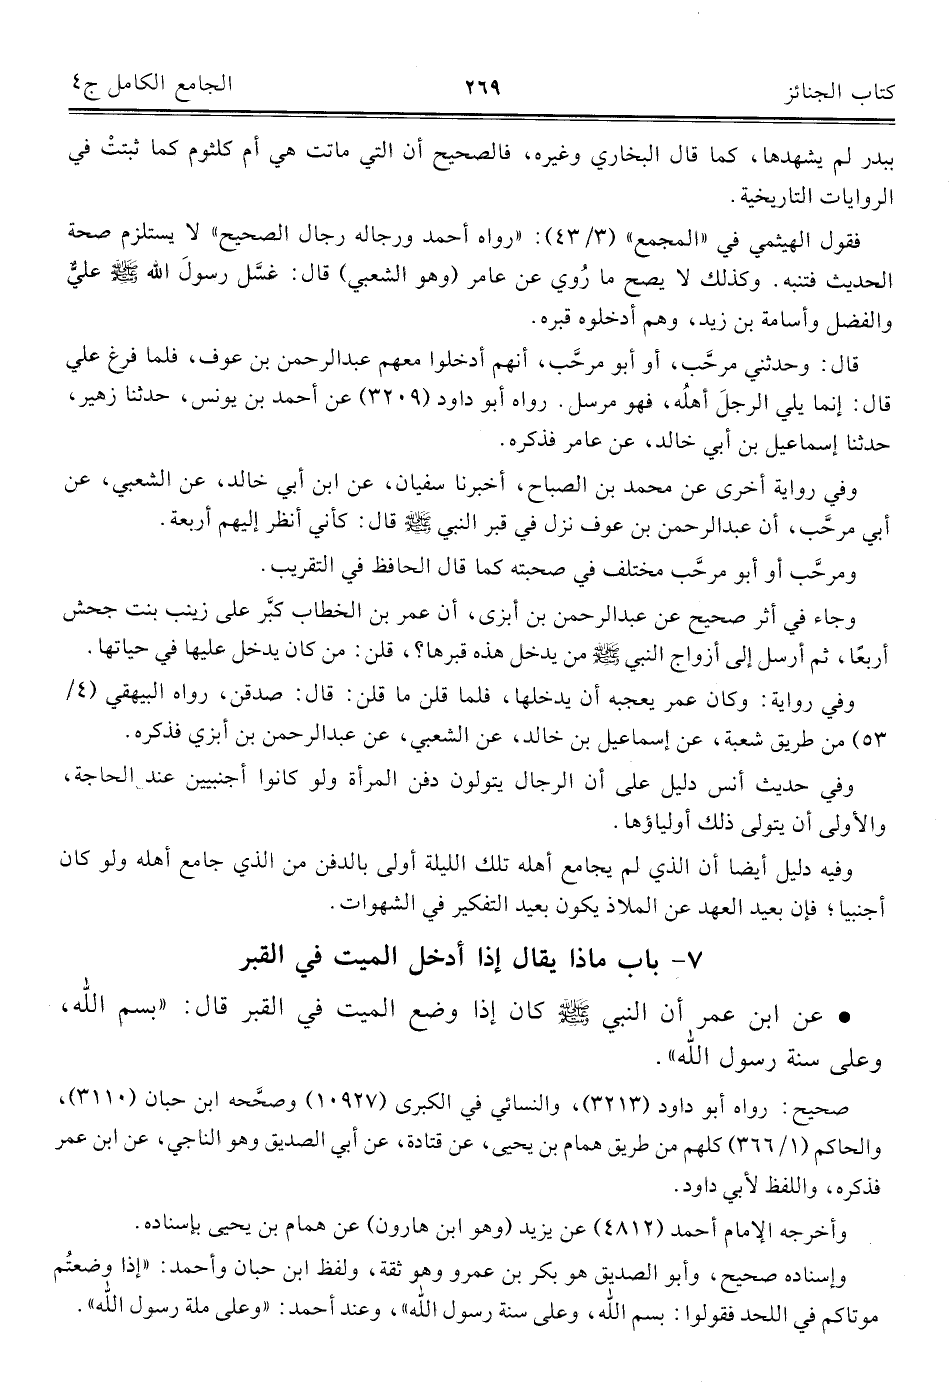 كتاب الجنائز ٢٦٩ الجامع الكامل ج٤
ببدر لم يشهدها، كما قال البخاري وغيره، فالصحيح أن التي ماتت هي أم كلثوم كما ثبتتْ في
الروايات التاريخية.
فقول الهيثمي في «المجمع» (٣/ ٤٣): «رواه أحمد ورجاله رجال الصحيح» لا يستلزم صحة
الحديث فتنبه. وكذلك لا يصح ما رُوي عن عامر (وهو الشعبي) قال: غسَّل رسولَ الله ﷺ عليٌّ
والفضل وأسامة بن زيد، وهم أدخلوه قبره.
قال: وحدثني مرحَّب، أو أبو مرحَّب، أنهم أدخلوا معهم عبدالرحمن بن عوف، فلما فرغ علي
قال: إنما يلي الرجلَ أهلُه، فهو مرسل. رواه أبو داود (٣٢٠٩) عن أحمد بن يونس، حدثنا زهير،
حدثنا إسماعيل بن أبي خالد، عن عامر فذكره.
وفي رواية أخرى عن محمد بن الصباح، أخبرنا سفيان، عن ابن أبي خالد، عن الشعبي، عن
أبي مرحَّب، أن عبدالرحمن بن عوف نزل في قبر النبي ﷺ قال: كأني أنظر إليهم أربعة.
ومرحَّب أو أبو مرحَّب مختلف في صحبته كما قال الحافظ في التقريب.
وجاء في أثر صحيح عن عبدالرحمن بن أبزى، أن عمر بن الخطاب كبَّر على زينب بنت جحش
أربعًا، ثم أرسل إلى أزواج النبي ﷺ من يدخل هذه قبرها؟، قلن: من كان يدخل عليها في حياتها.
وفي رواية: وكان عمر يعجبه أن يدخلها، فلما قلن ما قلن: قال: صدقن، رواه البيهقي (٤/
٥٣) من طريق شعبة، عن إسماعيل بن خالد، عن الشعبي، عن عبدالرحمن بن أبزي فذكره.
وفي حديث أنس دليل على أن الرجال يتولون دفن المرأة ولو كانوا أجنبيين عند الحاجة،
والأولى أن يتولى ذلك أولياؤها.
وفيه دليل أيضا أن الذي لم يجامع أهله تلك الليلة أولى بالدفن من الذي جامع أهله ولو كان
أجنبيا؛ فإن بعيد العهد عن الملاذ يكون بعيد التفكير في الشهوات.
٧- باب ماذا يقال إذا أدخل الميت في القبر
• عن ابن عمر أن النبي ﷺ كان إذا وضع الميت في القبر قال: «بسم الله،
وعلى سنة رسول الله».
صحيح: رواه أبو داود (٣٢١٣)، والنسائي في الكبرى (١٠٩٢٧) وصحَّحه ابن حبان (٣١١٠)،
والحاكم (١/ ٣٦٦) كلهم من طريق همام بن يحيى، عن قتادة، عن أبي الصديق وهو الناجي، عن ابن عمر
فذكره، واللفظ لأبي داود.
وأخرجه الإمام أحمد (٤٨١٢) عن يزيد (وهو ابن هارون) عن همام بن يحيى بإسناده.
وإسناده صحيح، وأبو الصديق هو بكر بن عمرو وهو ثقة، ولفظ ابن حبان وأحمد: «إذا وضعتُم
موتاكم في اللحد فقولوا: بسم الله، وعلى سنة رسول الله»، وعند أحمد: «وعلى ملة رسول الله».